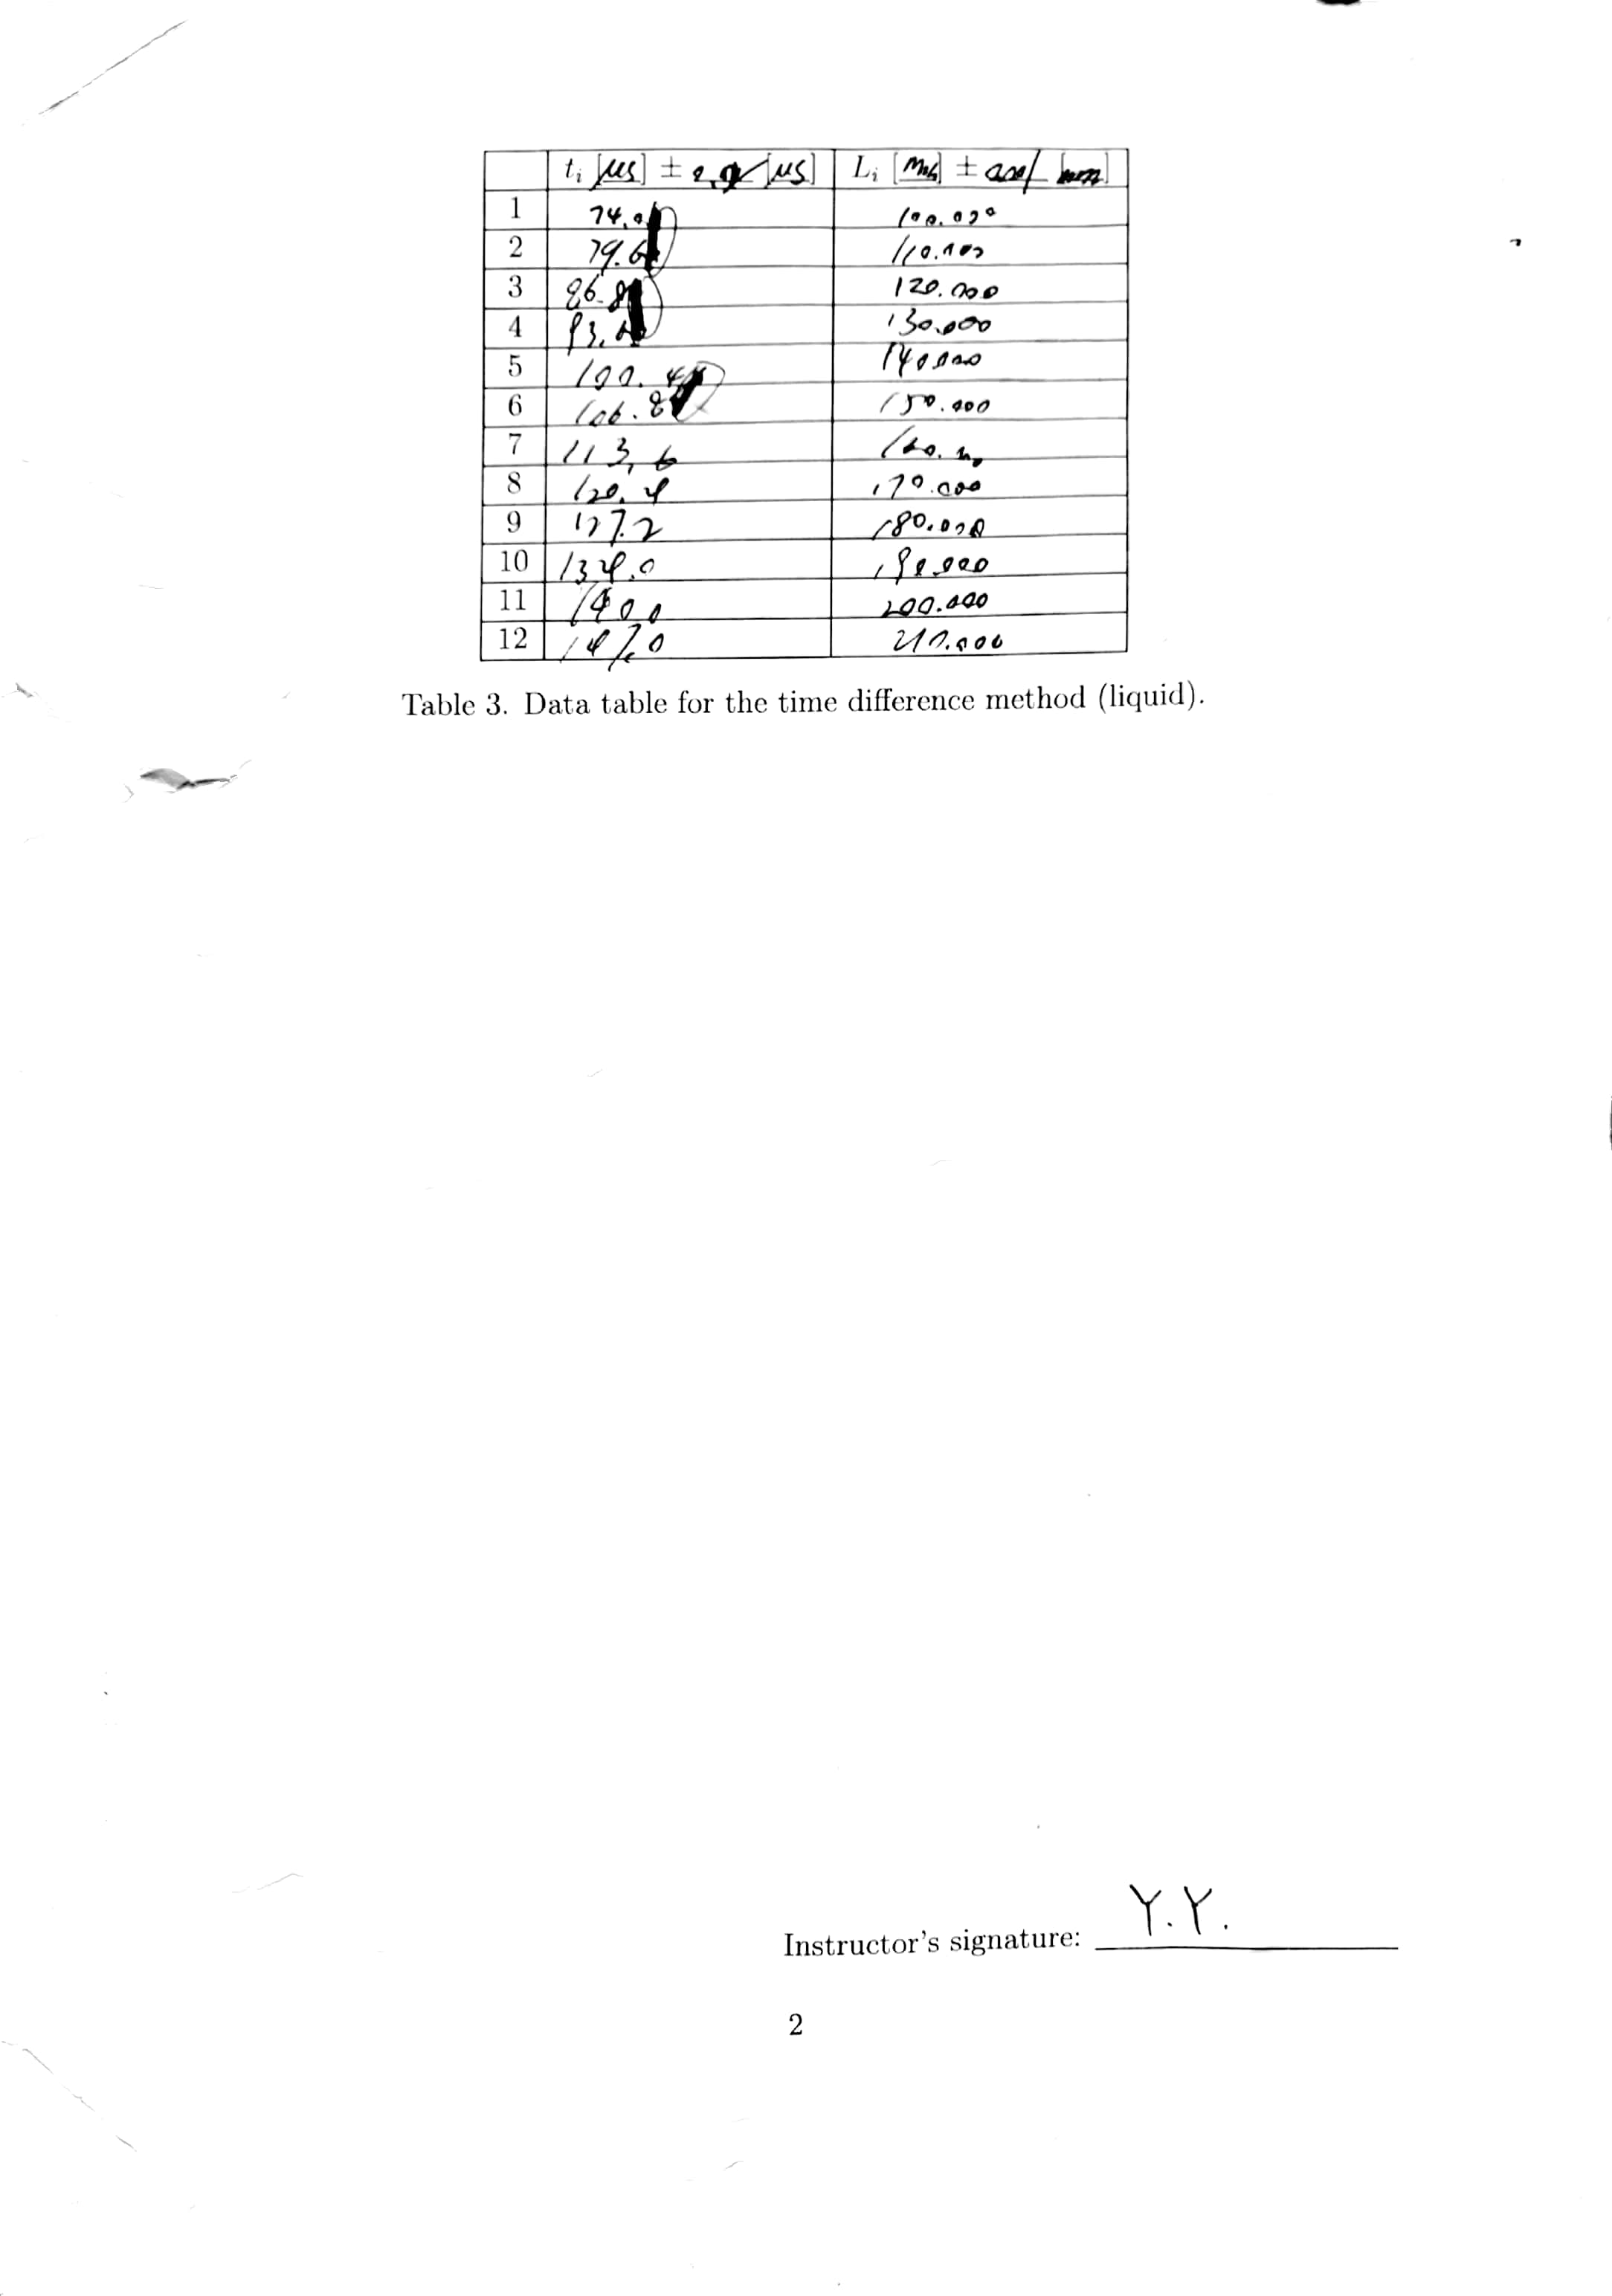 t_i [μs] ± [μs] L_i [mm] ± [mm]
1 74.0 100.000
2 79.6 110.000
3 86.8 120.000
4 93. 130.000
5 100.4 140.000
6 106.8 150.000
7 113.6
8 120.4 170.000
9 127.2 180.000
10 134.0 190.000
11 140.0 200.000
12 147.0 210.000
Table 3. Data table for the time difference method (liquid).
Instructor's signature: Y.Y.
2